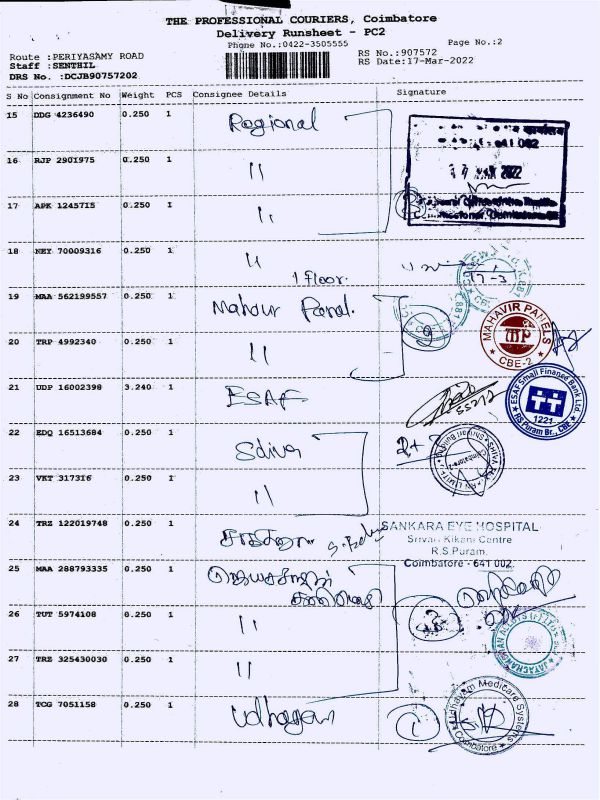 THE PROFESSIONAL COURIERS, Coimbatore
Delivery Runsheet - PC2
Phone No.:0422-3505555
Page No.:2
Route :PERIYASAMY ROAD
RS No.:907572
Staff :SENTHIL
RS Date:17-Mar-2022
DRS No. :DCJB90757202
S No Consignment No Weight PCS Consignee Details Signature
15 DDG 4236490 0.250 1 Regional
641 002
16 RJP 2901975 0.250 1 "
17 MAR 2022
17 APK 1245715 0.250 1 "
18 NEY 70009316 0.250 1 "
1 Floor.
17-3
19 MAA 562199557 0.250 1 Mahavir Panel.
9
MAHAVIR PANELS
MP
CBE-2
20 TRP 4992340 0.250 1 "
21 UDP 16002398 3.240 1 ESAF
ESAF Small Finance Bank Ltd.
1221
RS Puram Br., CBE
22 EDQ 16513684 0.250 1
23 VKT 317316 0.250 1 "
24 TRZ 122019748 0.250 1
SANKARA EYE HOSPITAL
Srivari Kikani Centre
R.S.Puram,
Coimbatore - 641 002.
25 MAA 288793335 0.250 1
26 TUT 5974108 0.250 1 "
3
27 TRZ 325430030 0.250 1 "
28 TCG 7051158 0.250 1 Udhayam
1
Udhayam Medicare Systems
Coimbatore